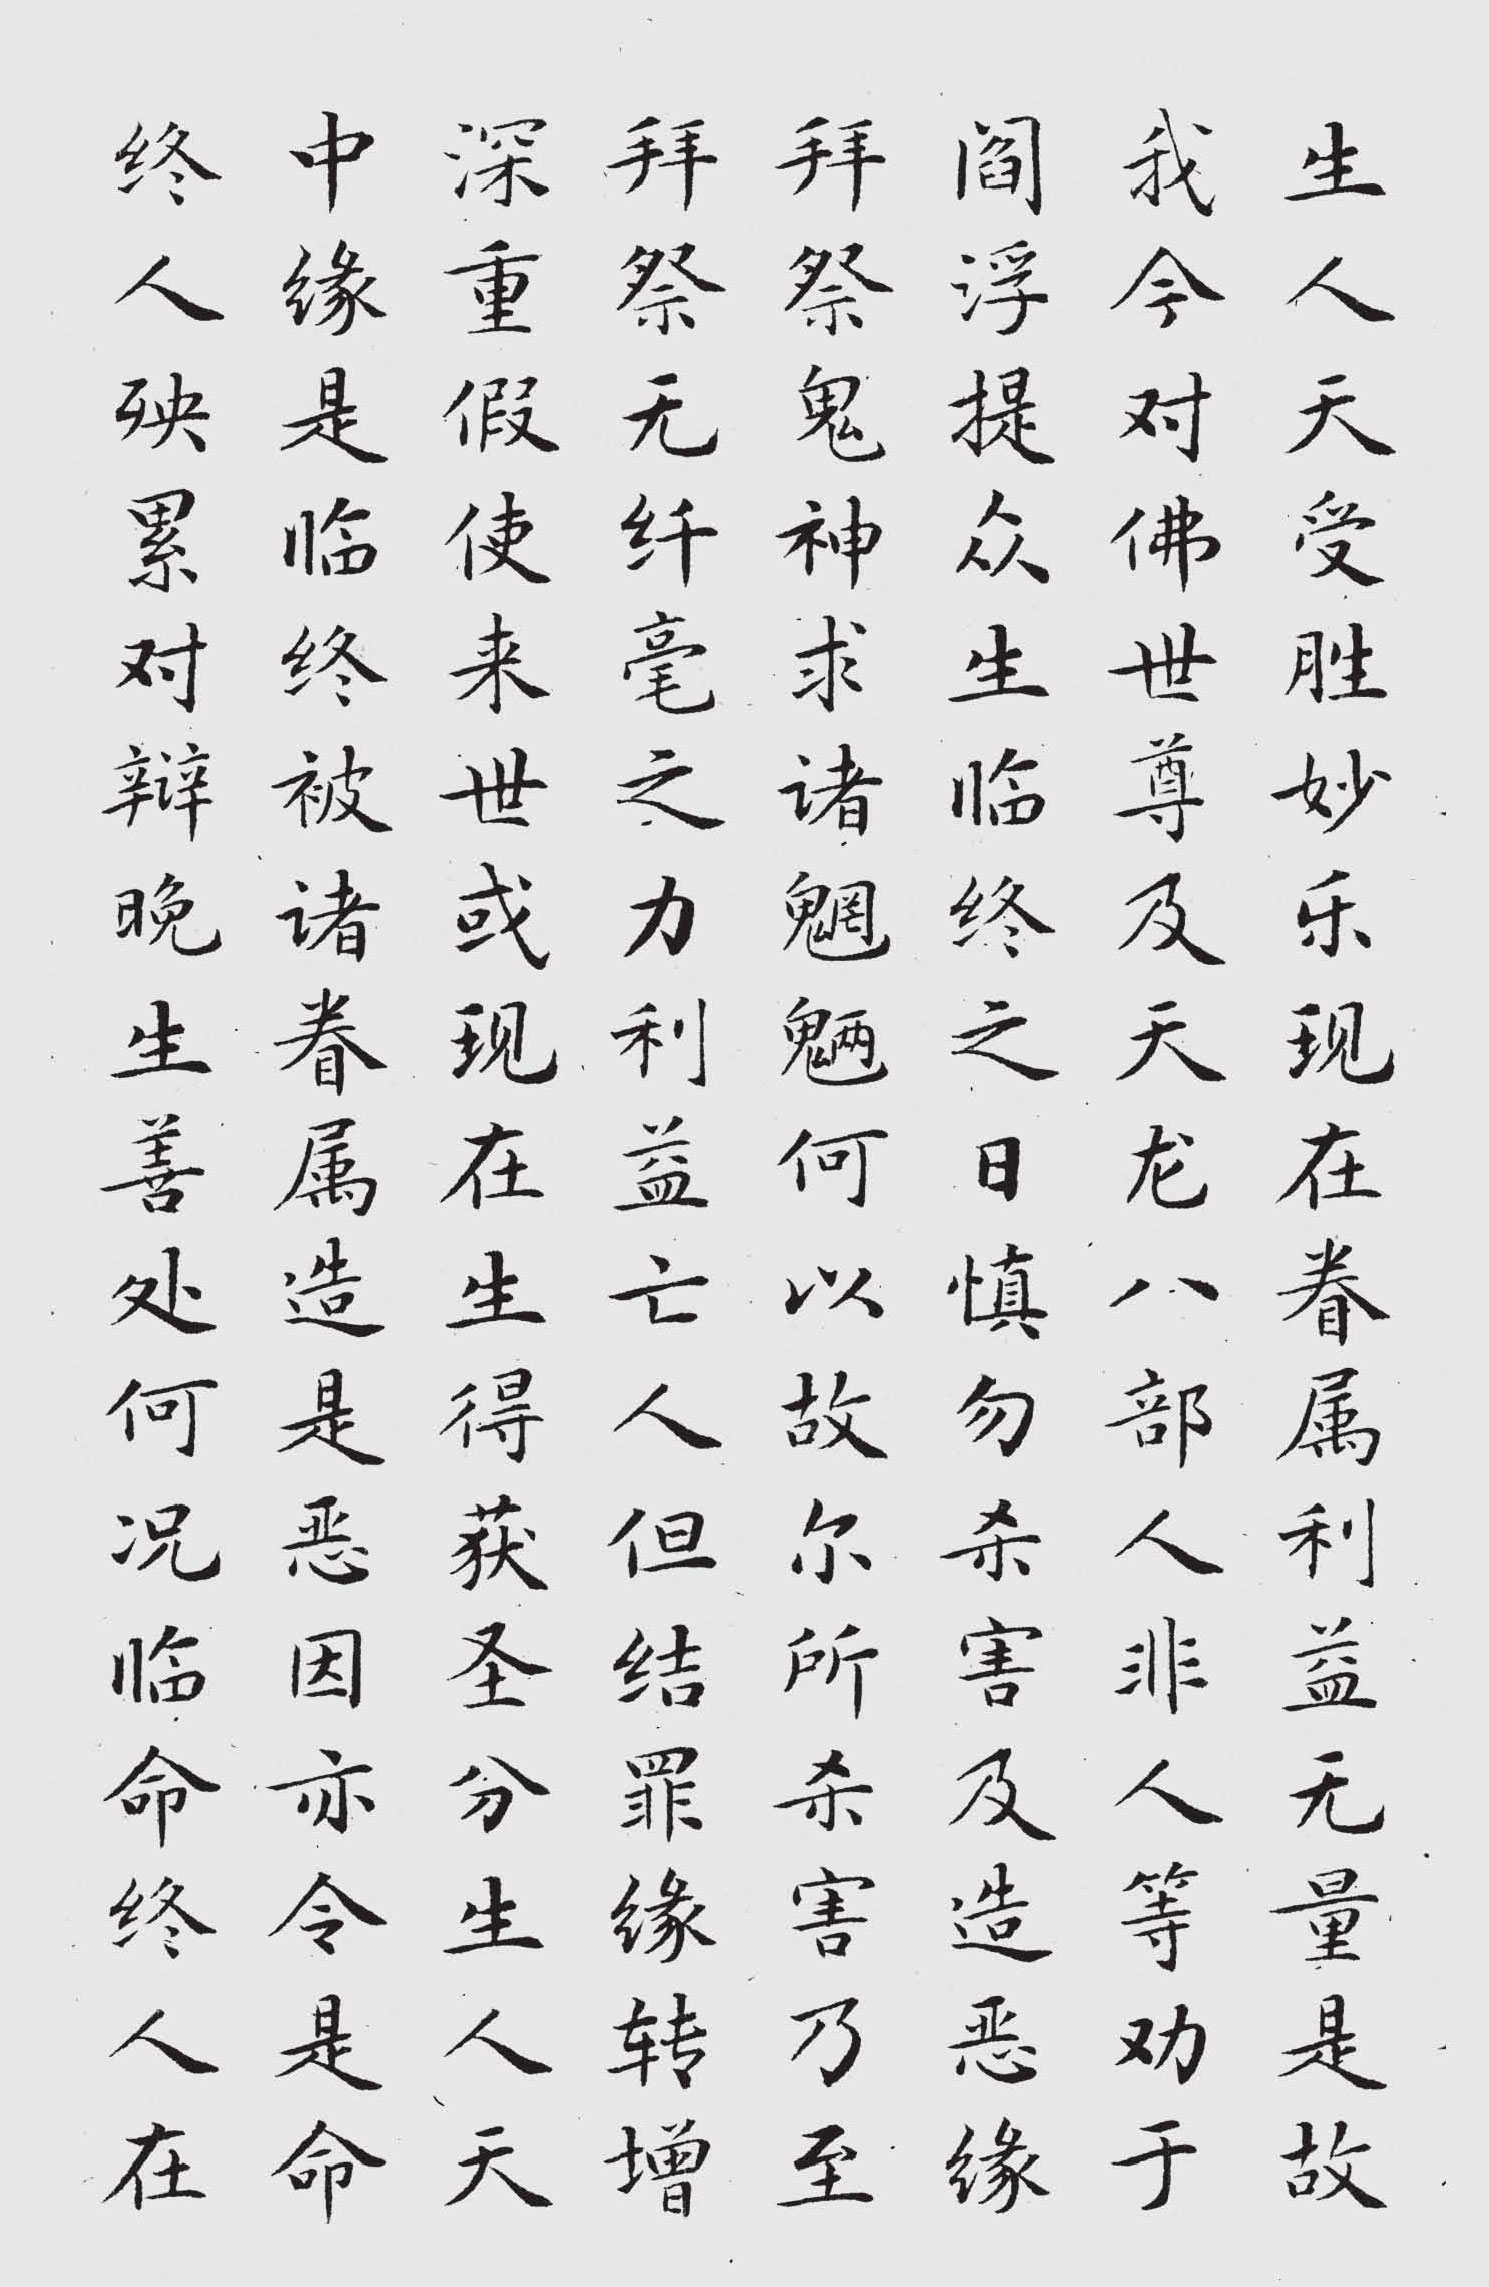 生人天受胜妙乐现在眷属利益无量是故
我今对佛世尊及天龙八部人非人等劝于
阎浮提众生临终之日慎勿杀害及造恶缘
拜祭鬼神求诸魍魉何以故尔所杀害乃至
拜祭无纤毫之力利益亡人但结罪缘转增
深重假使来世或现在生得获圣分生人天
中缘是临终被诸眷属造是恶因亦令是命
终人殃累对辩晚生善处何况临命终人在